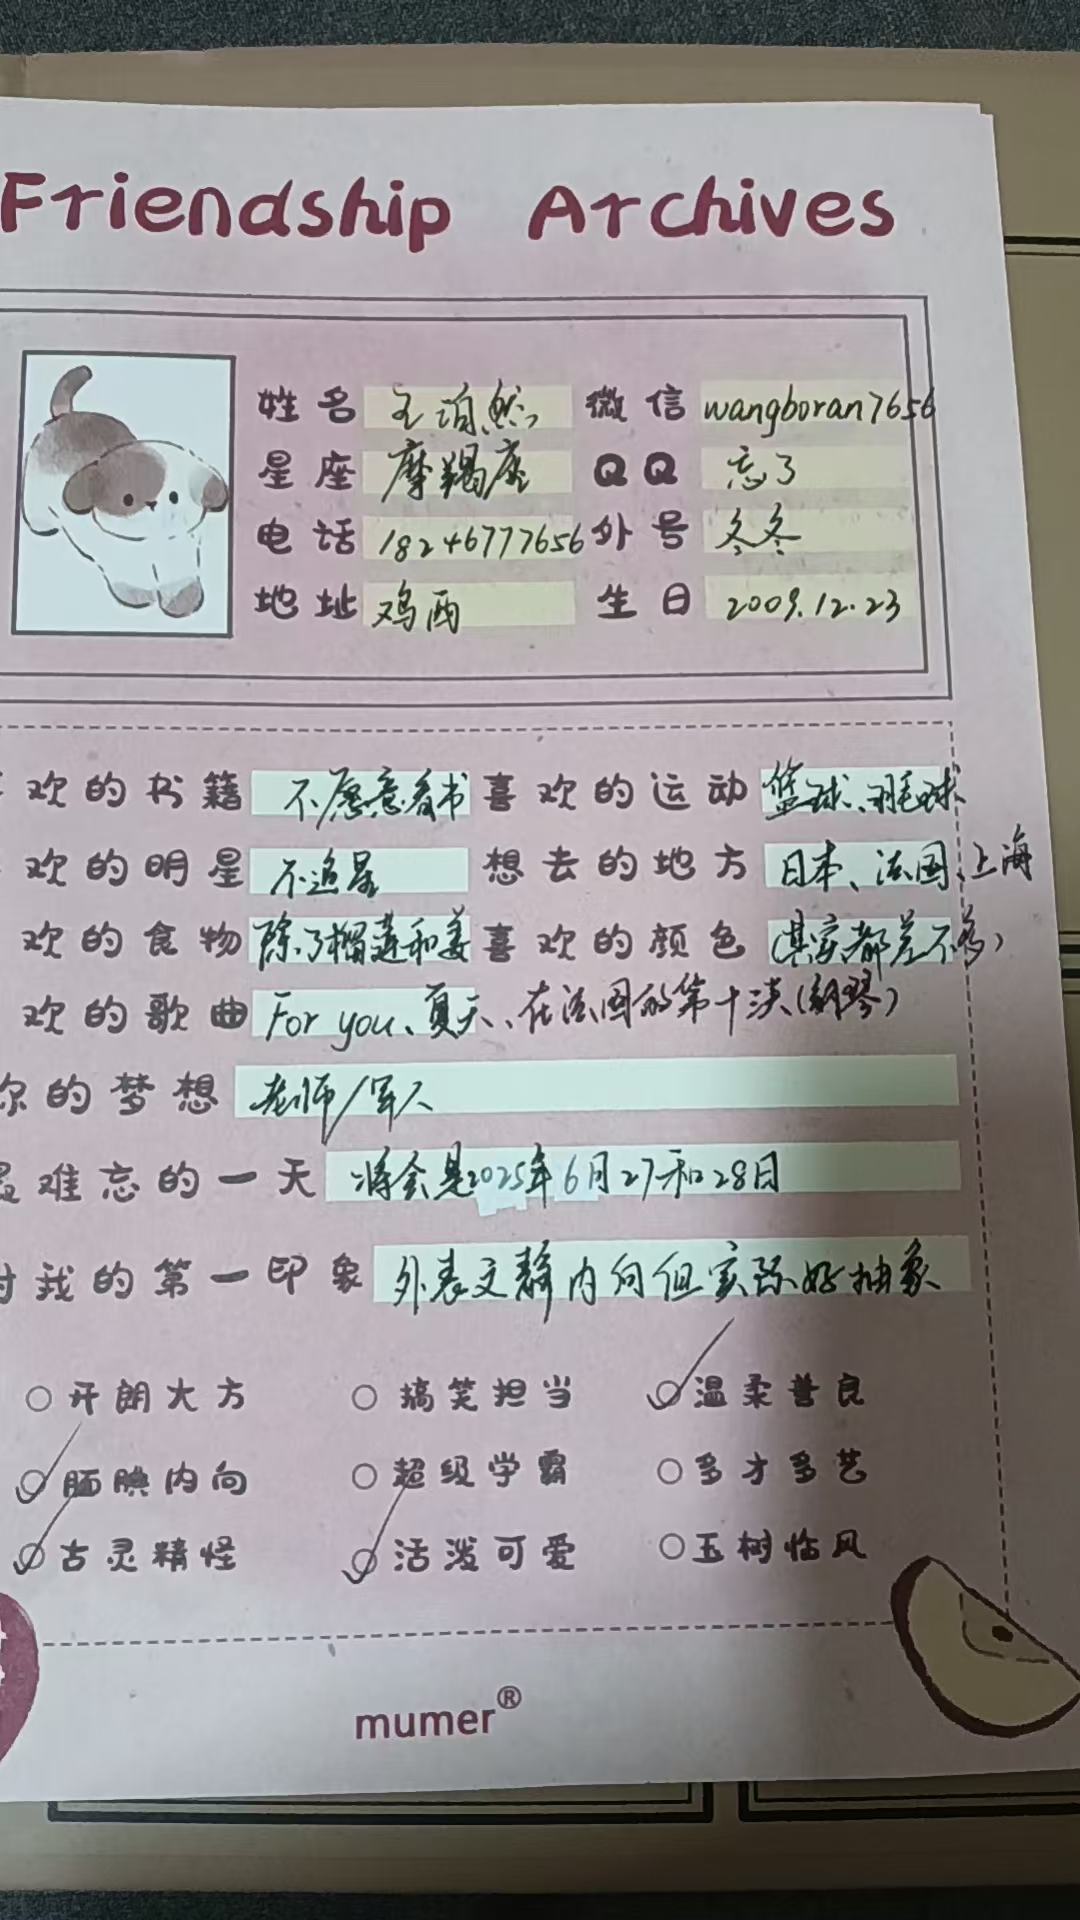 Friendship Archives
姓名 王泊然 微信 wangboran7656
星座 摩羯座 QQ 忘了
电话 18246777656 外号 冬冬
地址 鸡西 生日 2009.12.23
欢的书籍 不愿意看书 喜欢的运动 篮球、羽毛球
欢的明星 不追星 想去的地方 日本、法国、上海
欢的食物 除了榴莲和姜 喜欢的颜色 (其实都差不多)
欢的歌曲 For you、夏天、在法国的第十天(钢琴)
你的梦想 老师/军人
最难忘的一天 将会是2025年6月27和28日
对我的第一印象 外表文静内向但实际好抽象
开朗大方 搞笑担当 温柔善良
腼腆内向 超级学霸 多才多艺
古灵精怪 活泼可爱 玉树临风
mumer®